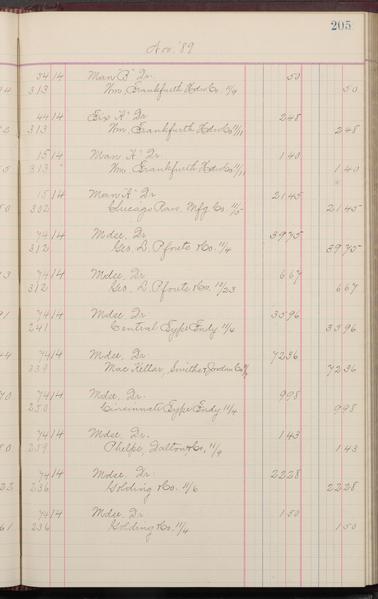 205
Nov. '89
34/14 Man "B" Dr. 50
313 Wm. Frankfurth Hdw Co. 11/9 50
44/14 Fix "A" Dr 248
313 Wm. Frankfurth Hdw Co 11/11 248
15/14 Man "A" Dr 140
313 Wm. Frankfurth Hdw Co 11/11 140
15/14 Man "A" Dr 2145
302 Chicago Mfg Co. 11/5 2145
74/14 Mdse, Dr 3975
312 Geo. D. Pfouts & Co. 11/4 3975
74/14 Mdse, Dr 667
312 Geo. D. Pfouts & Co. 10/23 667
74/14 Mdse Dr 3596
241 Central Type Fndy 11/6 3596
74/14 Mdse, Dr. 7236
239 Mac Kellar, Smiths & Jordan Co 7236
74/14 Mdse, Dr. 998
250 Cincinnati Type Fndy 11/4 998
74/14 Mdse Dr. 143
259 Phelps, Dalton & Co, 11/9 143
74/14 Mdse, Dr. 2228
236 Golding & Co. 11/6 2228
74/14 Mdse, Dr 150
236 Golding & Co. 11/4 150